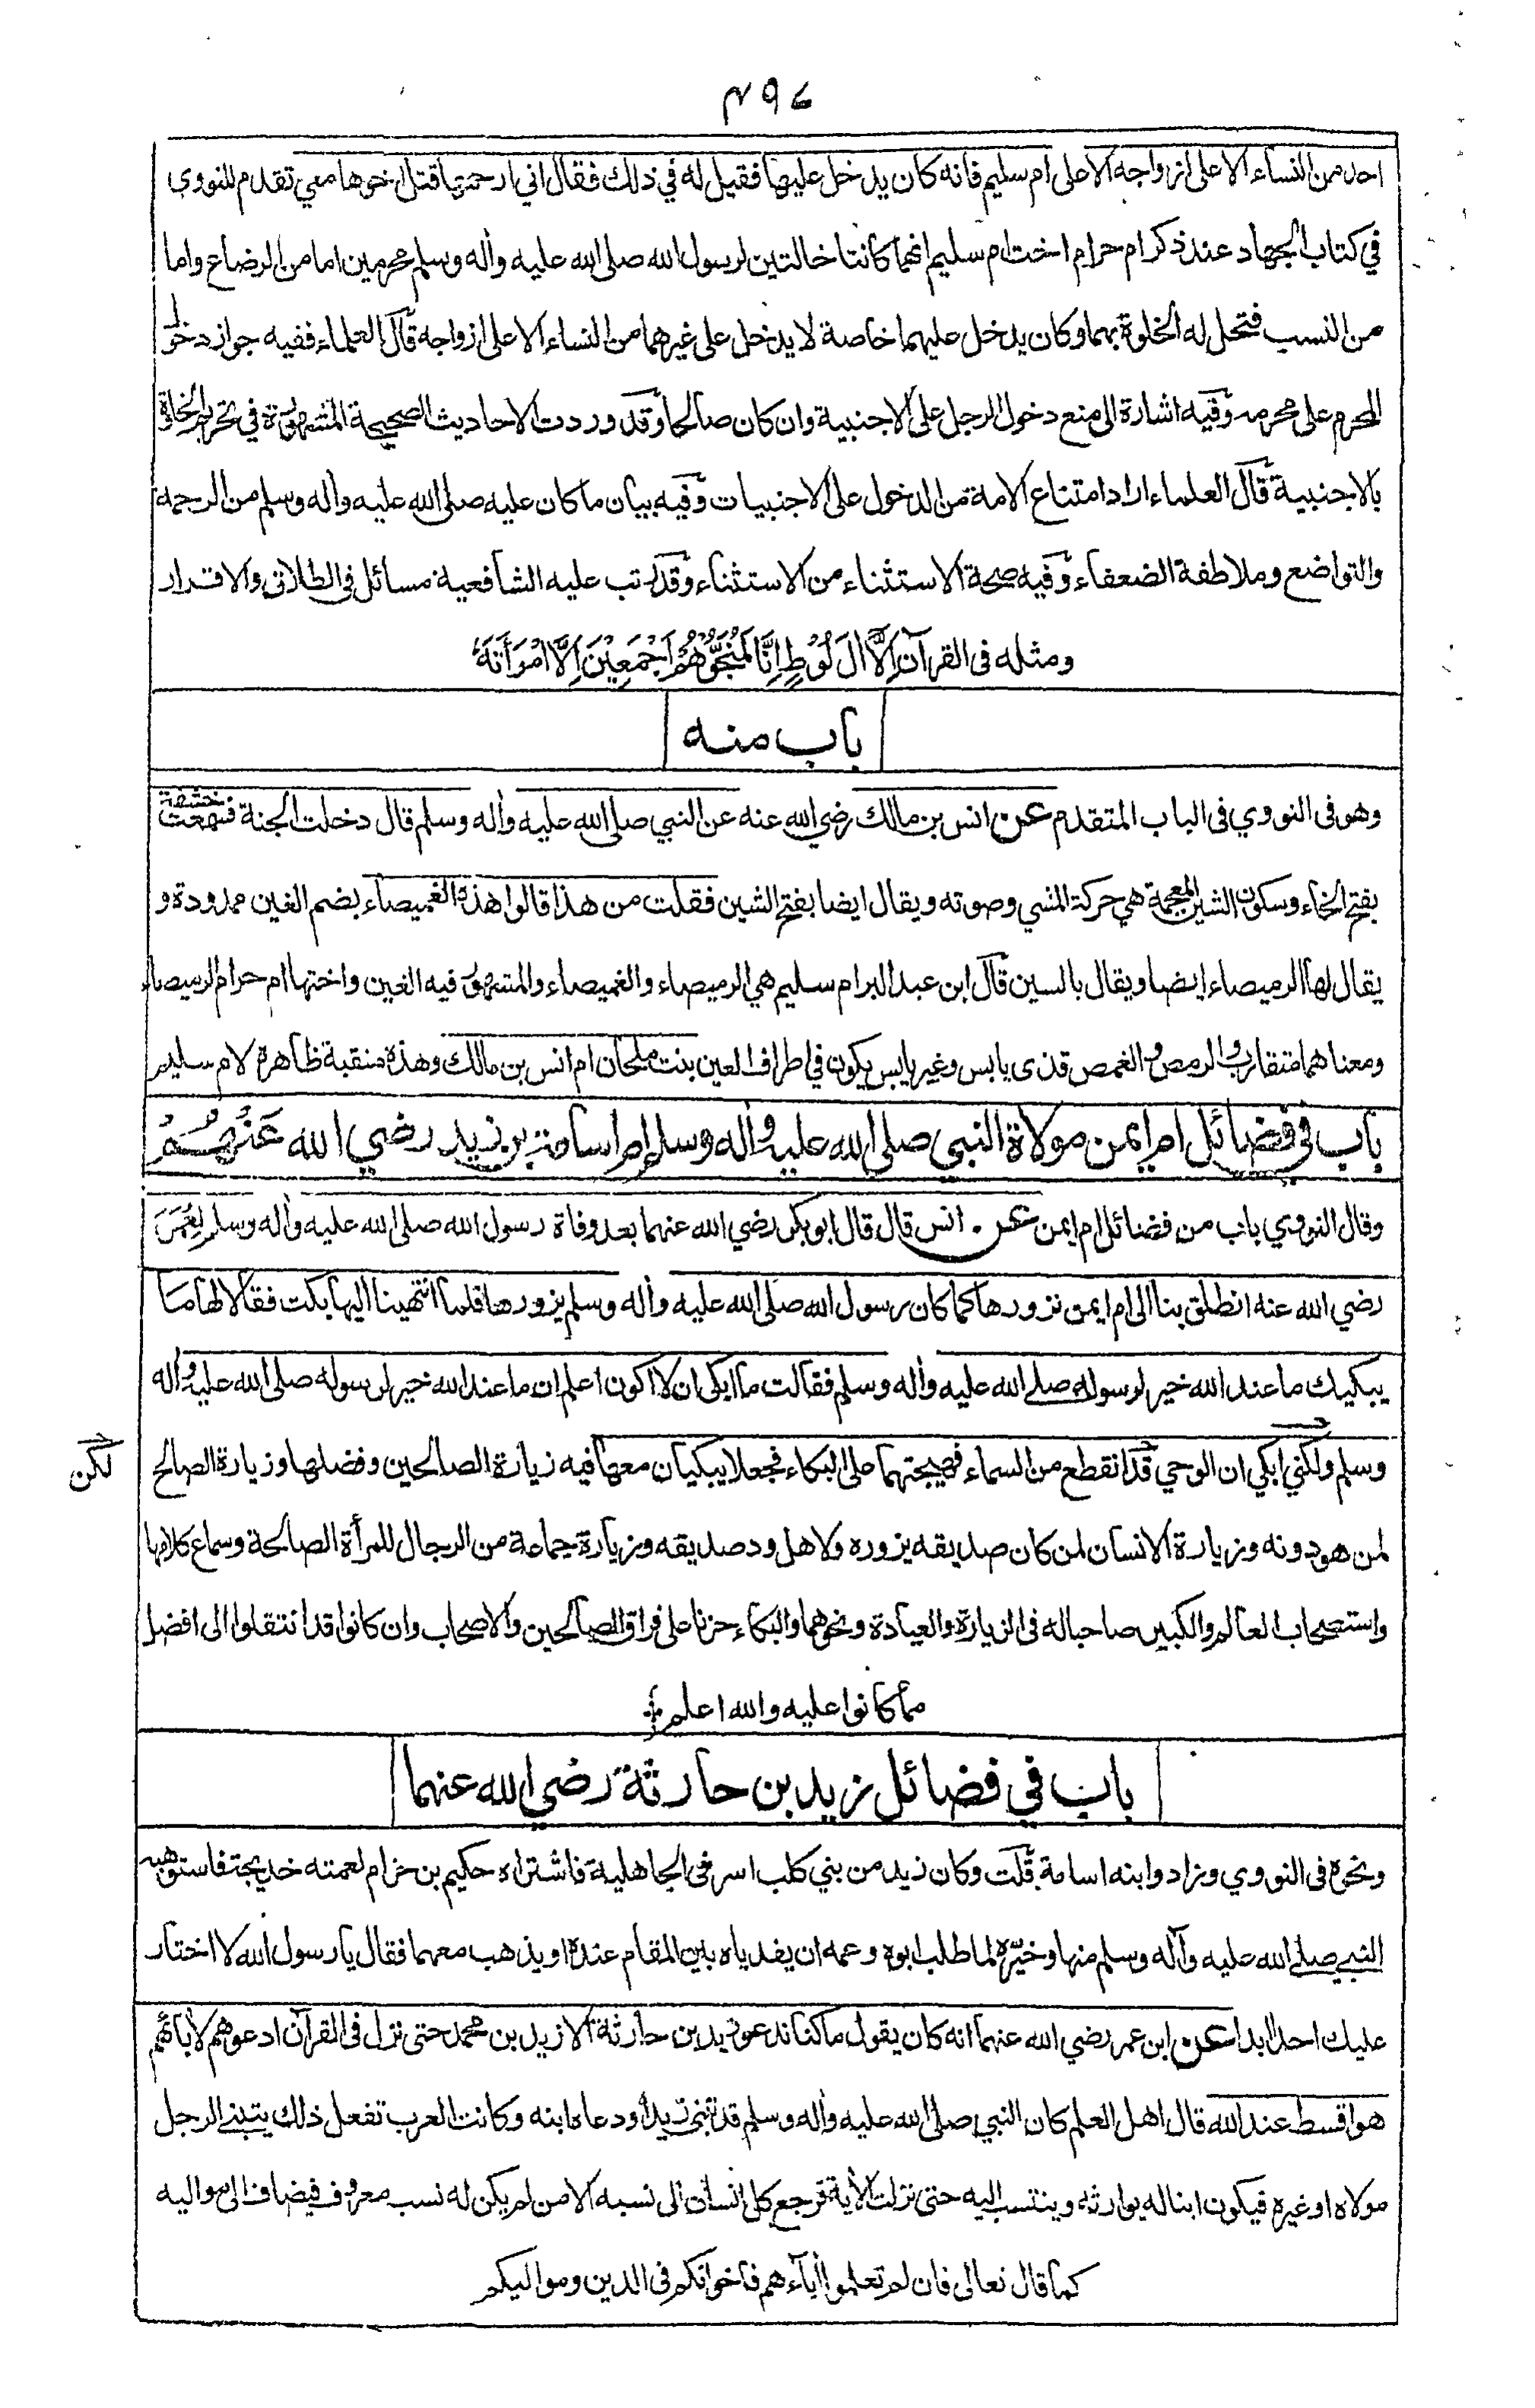 ٤٩٣
احد من النساء الا على ازواجه الا على ام سليم فانه كان يدخل عليها فقيل له في ذلك فقال اني ارحمها قتل اخوها معي تقدم للنووي
في كتاب الجهاد عند ذكر ام حرام اخت ام سليم انهما كانتا خالتين لرسول الله صلى الله عليه وأله وسلم محرمين اما من الرضاع واما
من النسب فتحل له الخلوة بهما وكان يدخل عليهما خاصة لا يدخل على غيرهما من النساء الا على ازواجه قال العلماء ففيه جواز دخول
المحرم على محرمه وفيه اشارة الى منع دخول الرجل على الاجنبية وان كان صالحا وقد وردت الاحاديث الصحيحة المشهورة في تحريم الخلوة
بالاجنبية قال العلماء اراد امتناع الامة من الدخول على الاجنبيات وفيه بيان ما كان عليه صلى الله عليه وأله وسلم من الرحمة
والتواضع وملاطفة الضعفاء وفيه صحة الاستثناء من الاستثناء وقد رتب عليه الشافعية مسائل في الطلاق والاقرار
ومثله فى القرآن اِلَّا اٰلَ لُوْطٍ اِنَّا لَمُنَجُّوْهُمْ اَجْمَعِيْنَ اِلَّا امْرَأَتَهٗ
باب منه
وهو فى النووي فى الباب المتقدم عن انس بن مالك رضي الله عنه عن النبي صلى الله عليه وأله وسلم قال دخلت الجنة فسمعت خشفة
بفتح الخاء وسكون الشين المعجمة هي حركة المشي وصوته ويقال ايضا بفتح الشين فقلت من هذا قالوا هذه الغميصاء بضم الغين ممدودة و
يقال لها الرميصاء ايضا ويقال بالسين قال ابن عبد البر ام سليم هي الرميصاء والغميصاء والمشهور فيه الغين واختها ام حرام الرميصاء
ومعناهما متقارب والرمص والغمص قذى يابس وغير يابس يكون في اطراف العين بنت ملحان ام انس بن مالك وهذه منقبة ظاهرة لام سليم
باب في فضائل ام ايمن مولاة النبي صلى الله عليه وأله وسلم ام اسامة بن زيد رضي الله عَنْهُمْ
وقال النووي باب من فضائل ام ايمن عن انس قال قال ابو بكر رضي الله عنهما بعد وفاة رسول الله صلى الله عليه وأله وسلم لِعُمَرَ
رضي الله عنه انطلق بنا الى ام ايمن نزورها كما كان رسول الله صلى الله عليه وأله وسلم يزورها فلما انتهينا اليها بكت فقالا لها ما
يبكيك ما عند الله خير لرسوله صلى الله عليه وأله وسلم فقالت ما ابكي ان لا اكون اعلم ان ما عند الله خير لرسوله صلى الله عليه وأله
وسلم ولكني ابكي ان الوحي قد انقطع من السماء فهيجتهما على البكاء فجعلا يبكيان معها فيه زيارة الصالحين وفضلها وزيارة الصالح
لكن
لمن هو دونه وزيارة الانسان لمن كان صديقه يزوره ولاهل ود صديقه وزيارة جماعة من الرجال للمرأة الصالحة وسماع كلامها
واستصحاب العالم والكبير صاحبا له فى الزيارة والعيادة ونحوهما والبكاء حزنا على فراق الصالحين والاصحاب وان كانوا قد انتقلوا الى افضل
مما كانوا عليه والله اعلم
باب في فضائل زيد بن حارثة رضي الله عنهما
ونحوه فى النووي وزاد وابنه اسامة قلت وكان زيد من بني كلب اسر فى الجاهلية فاشتراه حكيم بن حزام لعمته خديجة فاستوهبه
النبي صلى الله عليه وآله وسلم منها وخيّره لما طلب ابوه وعمه ان يفدياه بين المقام عنده او يذهب معهما فقال يا رسول الله لا اختار
عليك احدا ابدا عن ابن عمر رضي الله عنهما انه كان يقول ما كنا ندعو زيد بن حارثة الا زيد بن محمد حتى نزل فى القرآن ادعوهم لأبائهم
هو اقسط عند الله قال اهل العلم كان النبي صلى الله عليه وأله وسلم قد تبنى زيدا ودعاه ابنه وكانت العرب تفعل ذلك يتبنى الرجل
مولاه او غيره فيكون ابنا له يوارثه وينتسب اليه حتى نزلت الأية فرجع كل انسان الى نسبه الا من لم يكن له نسب معروف فيضاف الى مواليه
كما قال تعالى فان لم تعلموا أبآءهم فاخوانكم فى الدين ومواليكم